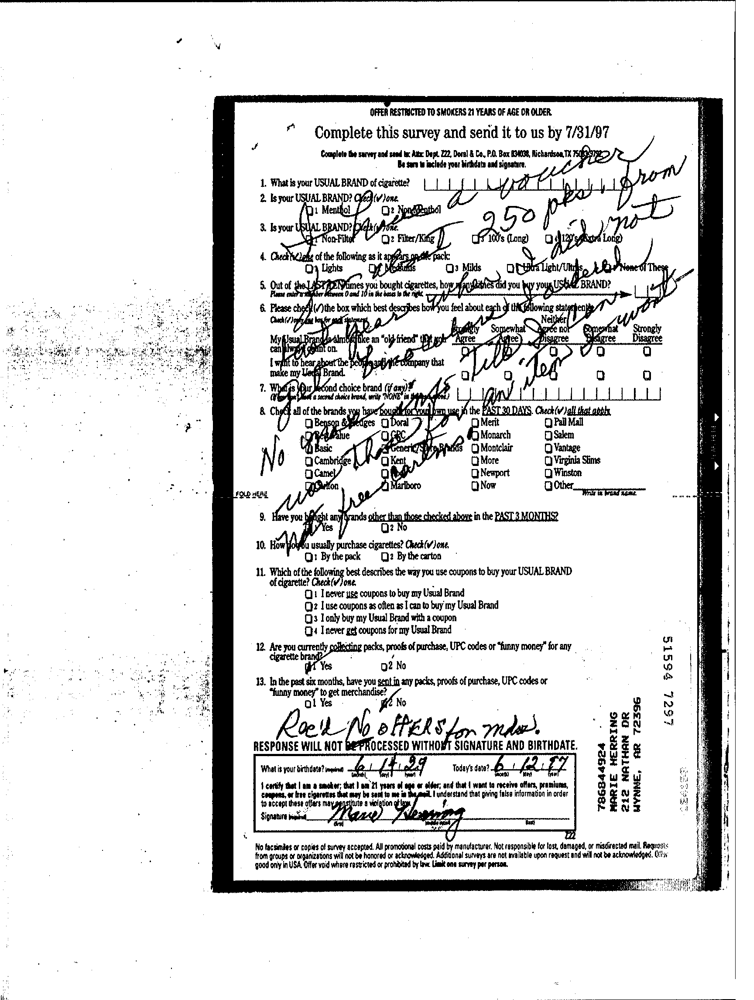 OFFER RESTRICTED TO SMOKERS 21 YEARS OF AGE OR OLDER.
Complete this survey and send it to us by 7/31/97
Complete the survey and send to: Attn: Dept. ZZ2, Doral & Co., P.O. Box 834038, Richardson, TX
Be sure to include your birthdate and signature.
a voucher from
250 pks.
I did not
1. What is your USUAL BRAND of cigarette?
2. Is your USUAL BRAND? Check (✓) one.
1 Menthol 2 Non-Menthol
3. Is your USUAL BRAND? Check (✓) one.
1 Non-Filter 2 Filter/King 3 100's (Long) 4 120's (Extra Long)
4. Check (✓) one of the following as it appears on the pack:
Lights Mediums 3 Milds Ultra Light/Ultras None of These
5. Out of the LAST TEN times you bought cigarettes, how many times did you buy your USUAL BRAND?
Please enter a number between 0 and 10 in the boxes to the right.
6. Please check (✓) the box which best describes how you feel about each of the following statements.
Check (✓) one box for each statement.
Strongly Agree Somewhat Agree Neither Agree nor Disagree Somewhat Disagree Strongly Disagree
My Usual Brand is almost like an "old friend" that I can always count on.
I want to hear about the people and the company that make my Usual Brand.
7. What is your second choice brand (if any)?
(If you don't have a second choice brand, write "NONE" in the boxes above.)
an item
8. Check all of the brands you have bought for your own use in the PAST 30 DAYS. Check (✓) all that apply.
Benson & Hedges Doral Merit Pall Mall
Best Value GPC Monarch Salem
Basic Generic/Store Brands Montclair Vantage
Cambridge Kent More Virginia Slims
Camel Newport Winston
Carlton Marlboro Now Other
Write in brand name
No
free cartons
FOLD HERE
9. Have you bought any brands other than those checked above in the PAST 3 MONTHS?
1 Yes 2 No
10. How do you usually purchase cigarettes? Check (✓) one.
1 By the pack 2 By the carton
11. Which of the following best describes the way you use coupons to buy your USUAL BRAND
of cigarette? Check (✓) one.
1 I never use coupons to buy my Usual Brand
2 I use coupons as often as I can to buy my Usual Brand
3 I only buy my Usual Brand with a coupon
4 I never get coupons for my Usual Brand
12. Are you currently collecting packs, proofs of purchase, UPC codes or "funny money" for any
cigarette brand?
1 Yes 2 No
13. In the past six months, have you sent in any packs, proofs of purchase, UPC codes or
"funny money" to get merchandise?
1 Yes 2 No
Rec'd No offers for mdse.
RESPONSE WILL NOT BE PROCESSED WITHOUT SIGNATURE AND BIRTHDATE.
What is your birthdate? (required) 6 14 29 Today's date? 6 12 97
(month) (day) (year) (month) (day) (year)
I certify that I am a smoker; that I am 21 years of age or older; and that I want to receive offers, premiums,
coupons, or free cigarettes that may be sent to me in the mail. I understand that giving false information in order
to accept these offers may constitute a violation of law.
Signature (required) Marie Herring
(first) (middle initial) (last)
ZZ2
No facsimiles or copies of survey accepted. All promotional costs paid by manufacturer. Not responsible for lost, damaged, or misdirected mail. Requests
from groups or organizations will not be honored or acknowledged. Additional surveys are not available upon request and will not be acknowledged. Offer
good only in USA. Offer void where restricted or prohibited by law. Limit one survey per person.
786844924
MARIE HERRING
212 NATHAN DR
WYNNE, AR 72396
51594 7297